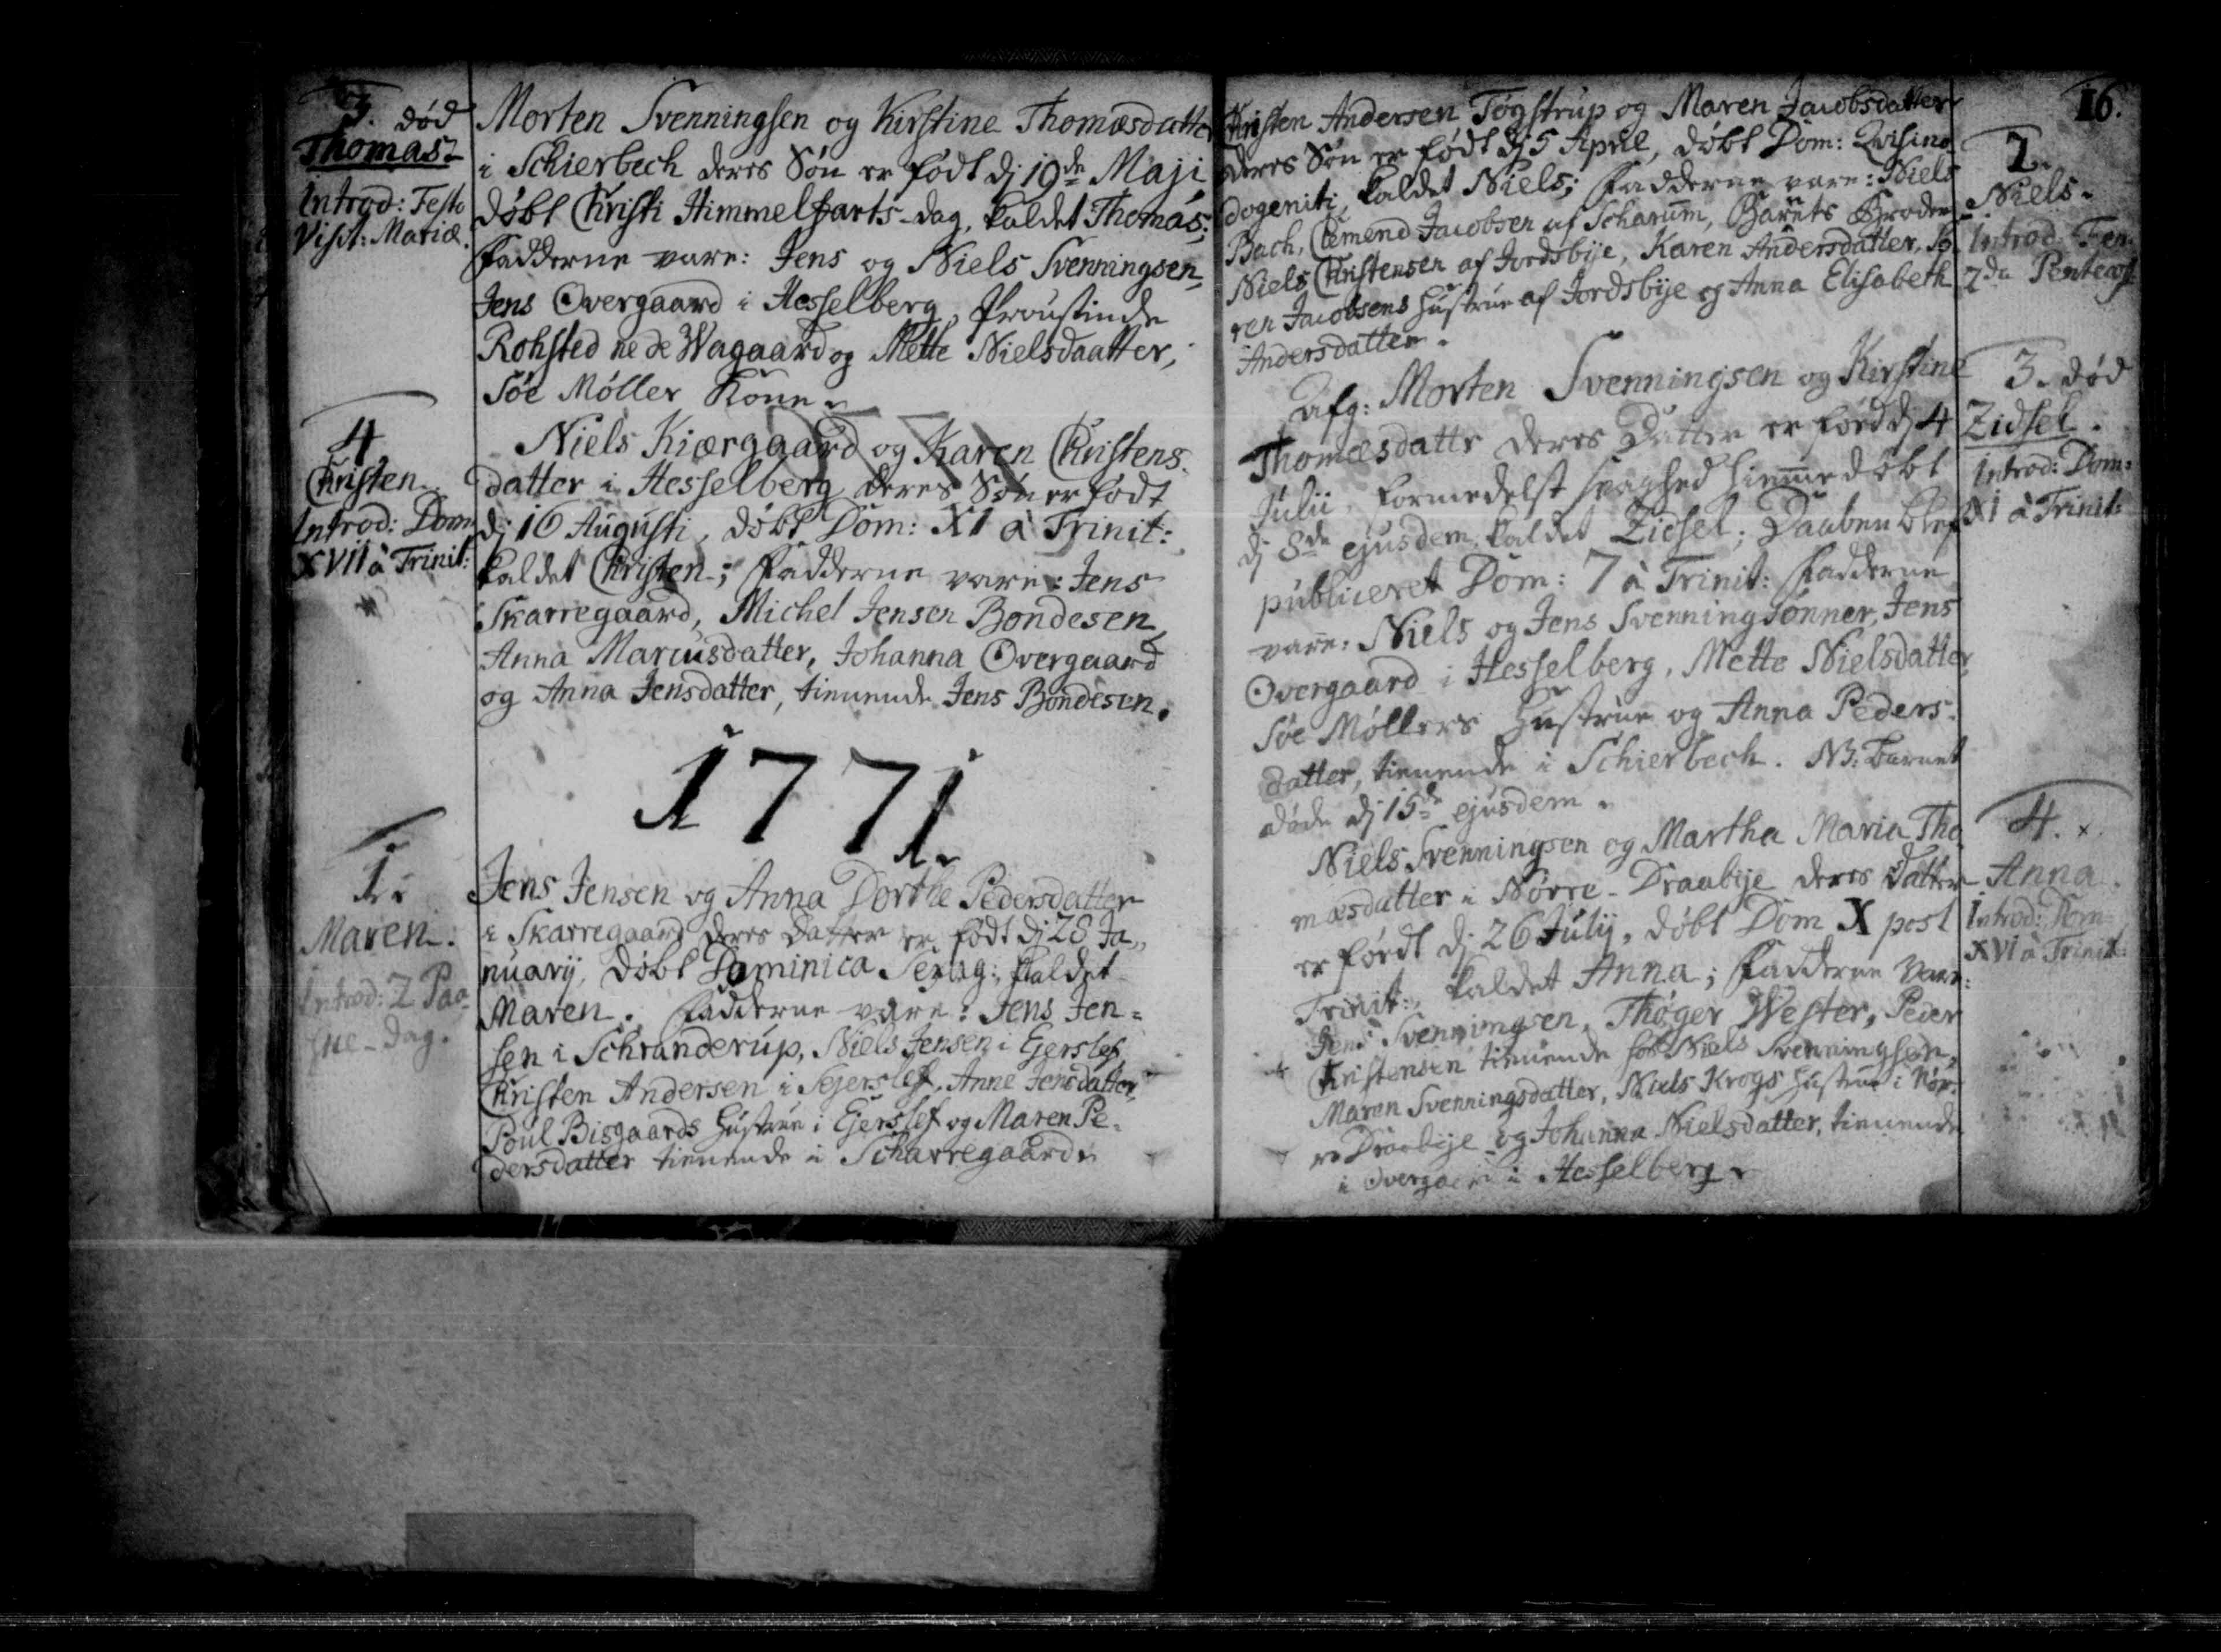 3. død
Thomas.
Introd: Festo
Visit: Mariæ.
Morten Svenningsen og Kirstine Thomæsdatter
i Schierbech deres Søn er født dj 19de Maji
døbt Christi Himmelfarts-dag, kaldet Thomas;
Fadderne vare: Jens og Niels Svenningsen,
Jens Overgaard i Hesselberg, Provstinde
Rohsted ne de Wagaard og Mette Nielsdaatter,
Søe Møller Kone.
4.
Christen.
Introd: Dom
XVII à Trinit:
Niels Kiærgaard og Karen Christens
datter i Hesselberg deres Søn er født
dj 16 Augusti, døbt Dom: XI à Trinit:
kaldet Christen; Fadderne vare: Jens
Skarregaard, Michel Jensen Bondesen,
Anna Marcusdatter, Johanna Overgaard
og Anna Jensdatter, tienende Jens Bondesen.
1771.
1.
Maren.
Introd: 2 Paa-
ske-dag.
Jens Jensen og Anna Dorthe Pedersdatter
i Skarregaard deres Datter er født dj 28 Ja,,
nuarij, døbt Dominica Sexag: kaldet
Maren. Fadderne vare: Jens Jen=
sen i Schranderup, Niels Jensen i Ejerslef,
Christen Andersen i Sejerslef, Anne Jensdatter,
Poul Bisgaards Hustrue i Ejerslef og Maren Pe-
dersdatter tienende i Scharregaard.
16.
Christen Andersen Togstrup og Maren Jacobsdatter
deres Søn er født dj 5 April, døbt Dom: Qvasimo-
dogeniti, kaldet Niels; Fadderne vare: Niels
Bach, Clemend Jacobsen af Scharum, Barnets Broder
Niels Christensen af Jordsbije, Karen Andersdatter,
Jacobsens Hustrue af Jordsbije og Anna Elisabeth
Andersdatter.
2.
Niels.
Introd: Fer:
2da Pentecost
afg: Morten Svenningsen og Kirstine
Thomæsdattr deres Datter er født dj 4
Julii, formedelst svaghed hiemmedøbt
dj 8de ejusdem, kaldet Zidsel; Daaben blef
publiceret Dom: 7 à Trinit: Fadderne
vare: Niels og Jens Svenningsønner, Jens
Overgaard i Hesselberg, Mette Nielsdatter,
Søe Møllers Hustrue og Anna Peders-
datter, tienende i Schierbech. NB: Barnet
døde dj 15de ejusdem.
3. død
Zidsel.
Introd: Dom:
XI à Trinit:
Niels Svenningsen og Martha Maria Tho
mæsdatter i Nørre-Draabije deres Datter
er født dj 26 Julij, døbt Dom X post
Trinit:, kaldet Anna; Fadderne vare:
Jens Svenningsen, Thøger Wester, Peder
Christensen tienende hos Niels Svenningsen,
Maren Svenningsdatter, Niels Krogs Hustrue i Nør-
re Draabije og Johanna Nielsdatter, tienende
i Overgaard i Hesselberg.
4. x
Anna.
Introd: Dom
XVI à Trinit: